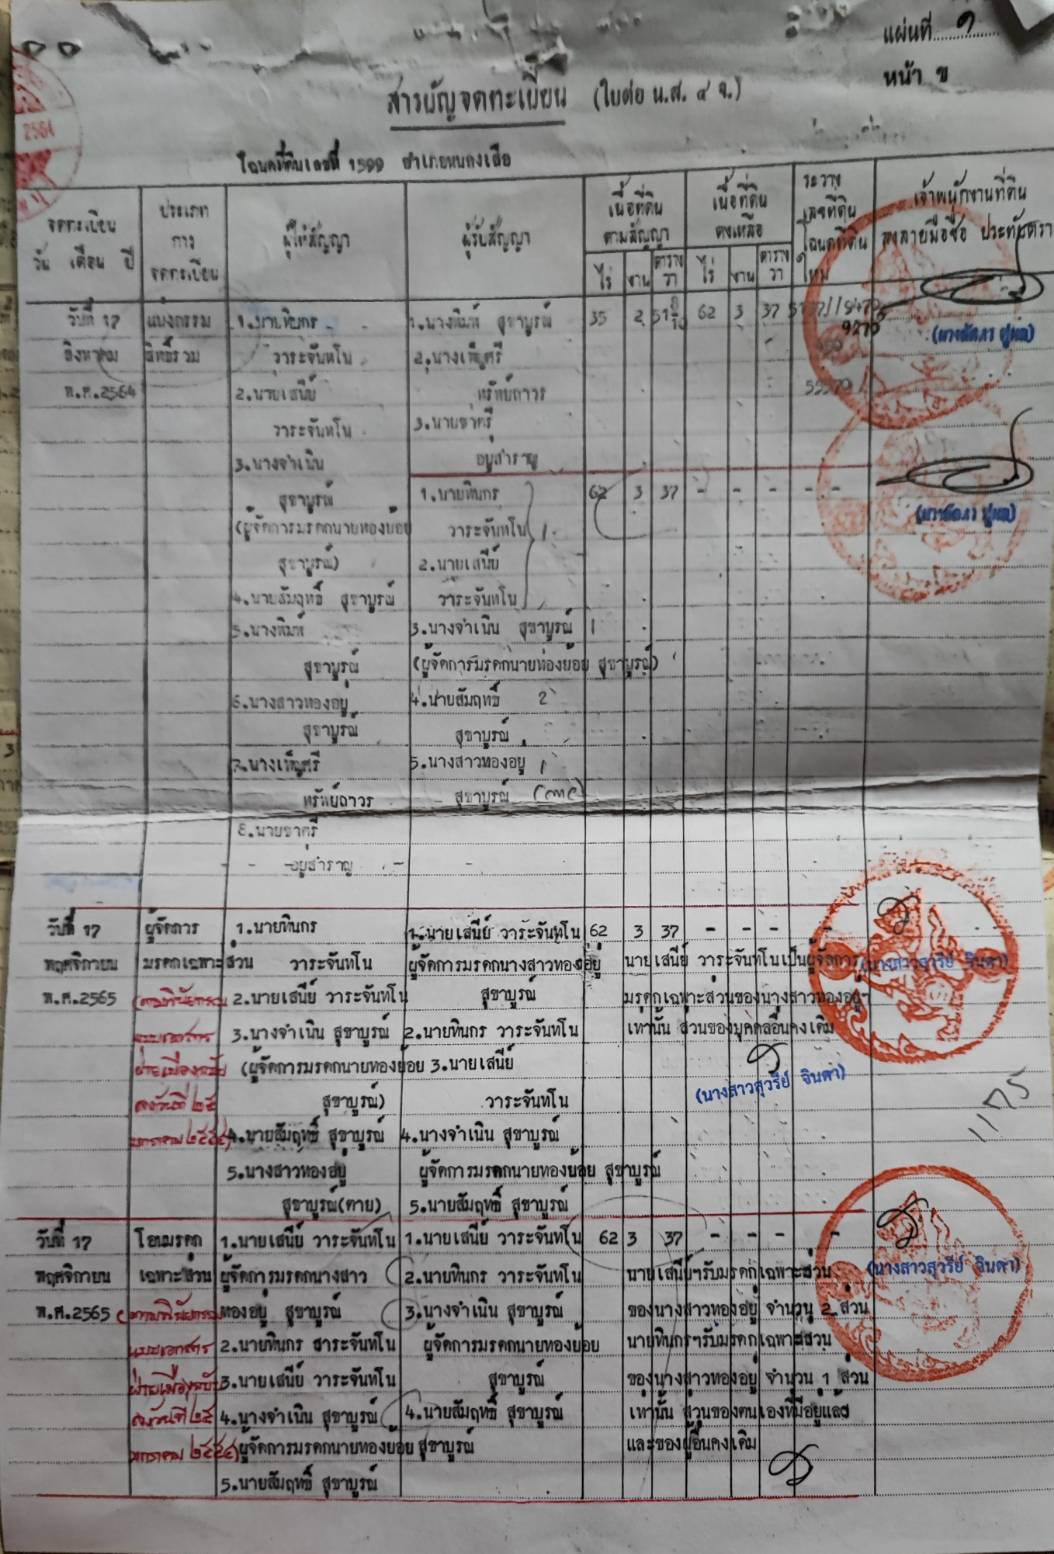 แผ่นที่ ๑
หน้า ข
สารบัญจดทะเบียน (ใบต่อ น.ส. ๔ จ.)
2564
โฉนดที่ดินเลขที่ 1599 อำเภอหนองเสือ
จดทะเบียน วัน เดือน ปี
ประเภทการจดทะเบียน
ผู้ให้สัญญา
ผู้รับสัญญา
เนื้อที่ดินตามสัญญา
ไร่ งาน ตารางวา
เนื้อที่ดินคงเหลือ
ไร่ งาน ตารางวา
ระวาง เลขที่ดิน โฉนดที่ดินใหม่
เจ้าพนักงานที่ดิน ลงลายมือชื่อ ประทับตรา
วันที่ 17 แบ่งกรรม 1.นายทินกร 1.นางพิมพ์ สุขาบูรณ์ 35 2 62 3 37
สิงหาคม สิทธิ์รวม วาระจันทโน 2.นางเพ็ญศรี
พ.ศ.2564 2.นายเสนีย์ ทรัพย์ถาวร
วาระจันทโน 3.นายชาตรี
3.นางจำเนิน อยู่สำราญ
สุขาบูรณ์ 1.นายทินกร 62 3 37 - - - - -
(ผู้จัดการมรดกนายทองย้อย วาระจันทโน 1
สุขาบูรณ์) 2.นายเสนีย์
4.นายสัมฤทธิ์ สุขาบูรณ์ วาระจันทโน
5.นางพิมพ์ 3.นางจำเนิน สุขาบูรณ์ 1
สุขาบูรณ์ (ผู้จัดการมรดกนายทองย้อย สุขาบูรณ์)
6.นางสาวทองอยู่ 4.นายสัมฤทธิ์ 2
สุขาบูรณ์ สุขาบูรณ์
7.นางเพ็ญศรี 5.นางสาวทองอยู่ 1
ทรัพย์ถาวร สุขาบูรณ์
8.นายชาตรี
- - -อยู่สำราญ -
วันที่ 17 ผู้จัดการ 1.นายทินกร 1.นายเสนีย์ วาระจันทโน 62 3 37 - - - -
พฤศจิกายน มรดกเฉพาะส่วน วาระจันทโน ผู้จัดการมรดกนางสาวทองอยู่ นายเสนีย์ วาระจันทโนเป็นผู้จัดการ (นางสาวสุวรีย์ จินดา)
พ.ศ.2565 2.นายเสนีย์ วาระจันทโน สุขาบูรณ์ มรดกเฉพาะส่วนของนางสาวทองอยู่ฯ
3.นางจำเนิน สุขาบูรณ์ 2.นายทินกร วาระจันทโน เท่านั้น ส่วนของบุคคลอื่นคงเดิม
(ผู้จัดการมรดกนายทองย้อย 3.นายเสนีย์
ลงวันที่ ๒๕ สุขาบูรณ์) วาระจันทโน (นางสาวสุวรีย์ จินดา)
4.นายสัมฤทธิ์ สุขาบูรณ์ 4.นางจำเนิน สุขาบูรณ์
5.นางสาวทองอยู่ ผู้จัดการมรดกนายทองย้อย สุขาบูรณ์
สุขาบูรณ์(ตาย) 5.นายสัมฤทธิ์ สุขาบูรณ์
1175
วันที่ 17 โอนมรดก 1.นายเสนีย์ วาระจันทโน 1.นายเสนีย์ วาระจันทโน 62 3 37 - - - -
พฤศจิกายน เฉพาะส่วน ผู้จัดการมรดกนางสาว 2.นายทินกร วาระจันทโน นายเสนีย์ฯรับมรดกเฉพาะส่วน (นางสาวสุวรีย์ จินดา)
พ.ศ.2565 ทองอยู่ สุขาบูรณ์ 3.นางจำเนิน สุขาบูรณ์ ของนางสาวทองอยู่ จำนวน 2 ส่วน
2.นายทินกร สาระจันทโน ผู้จัดการมรดกนายทองย้อย นายทินกรฯรับมรดกเฉพาะส่วน
3.นายเสนีย์ วาระจันทโน สุขาบูรณ์ ของนางสาวทองอยู่ จำนวน 1 ส่วน
ลงวันที่ ๒๕ 4.นางจำเนิน สุขาบูรณ์ 4.นายสัมฤทธิ์ สุขาบูรณ์ เท่านั้น ส่วนของตนเองที่มีอยู่แล้ว
ผู้จัดการมรดกนายทองย้อย สุขาบูรณ์ และของผู้อื่นคงเดิม
5.นายสัมฤทธิ์ สุขาบูรณ์